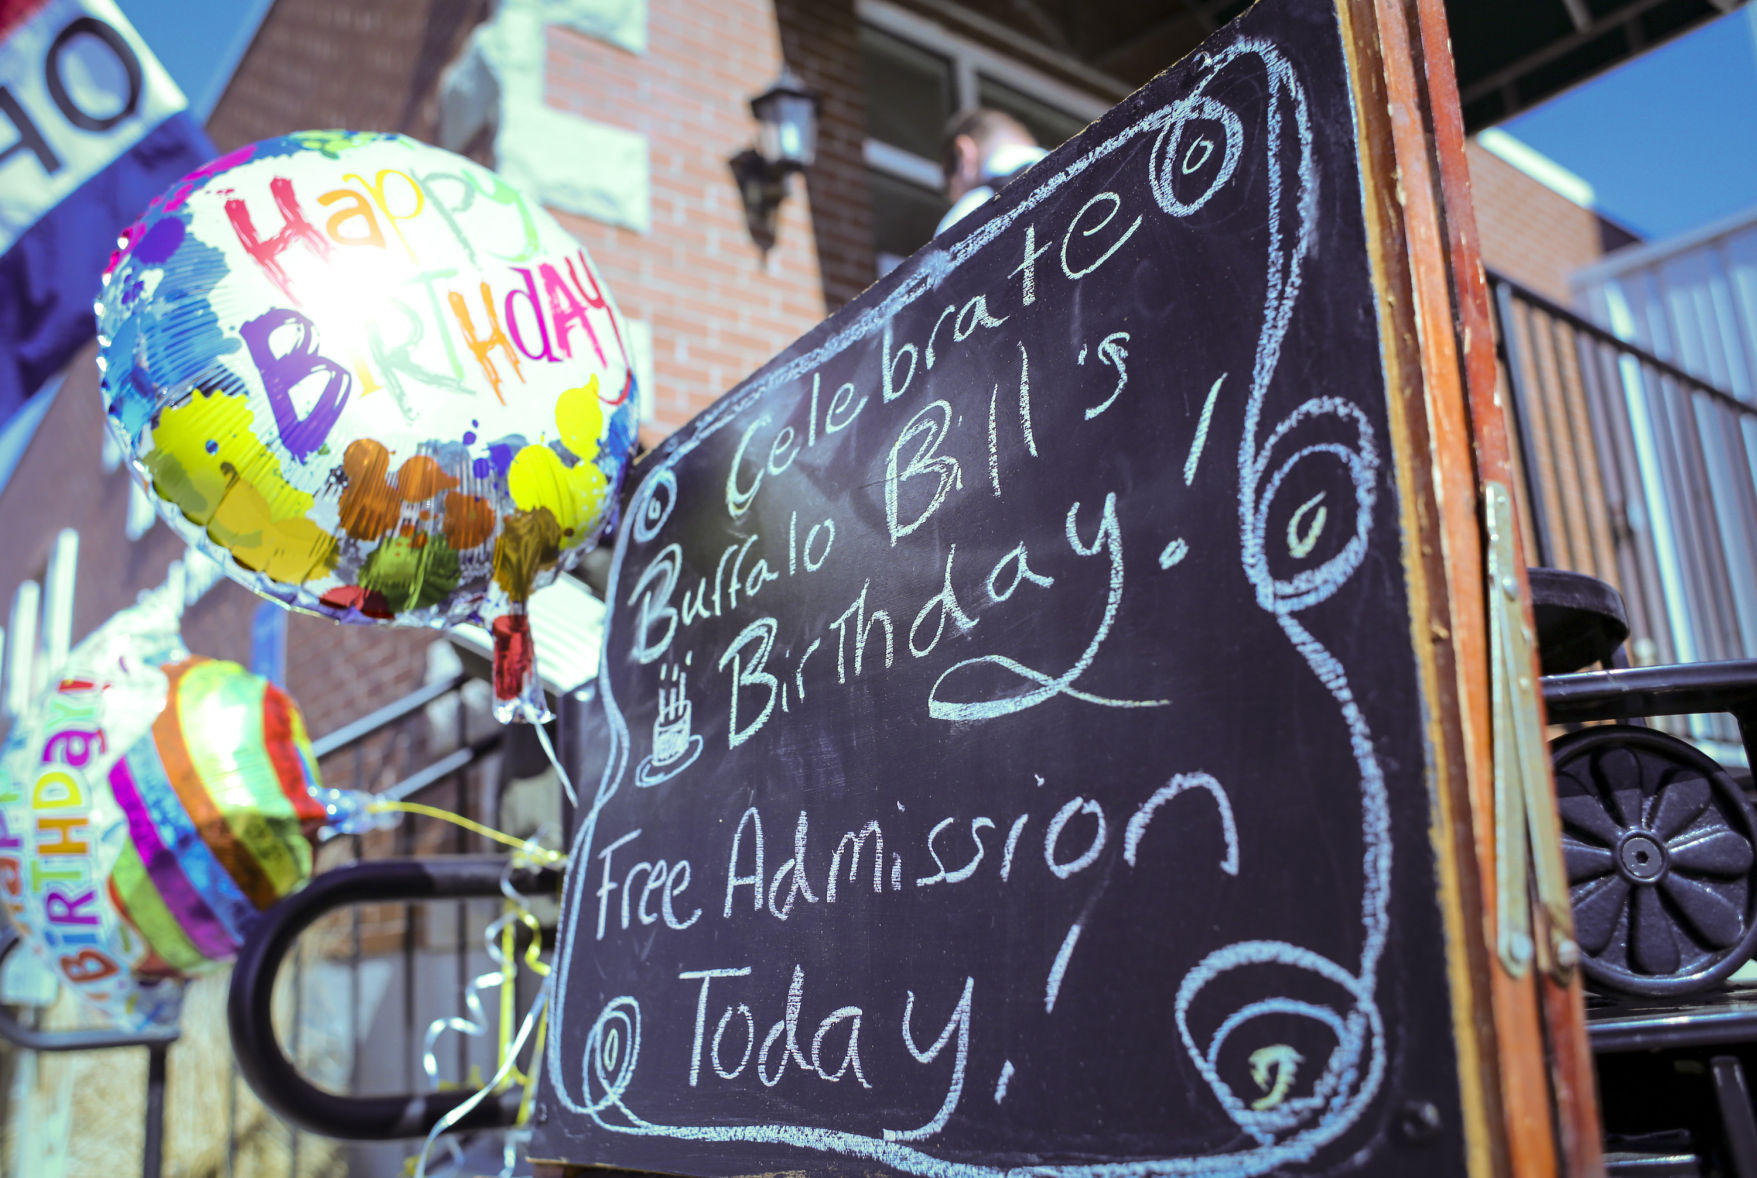 HO
Happy
BiRTHdAY
Celebrate
Buffalo Bill's
Birthday!
Free Admission
Today!
HAPPY
BiRTHDay!